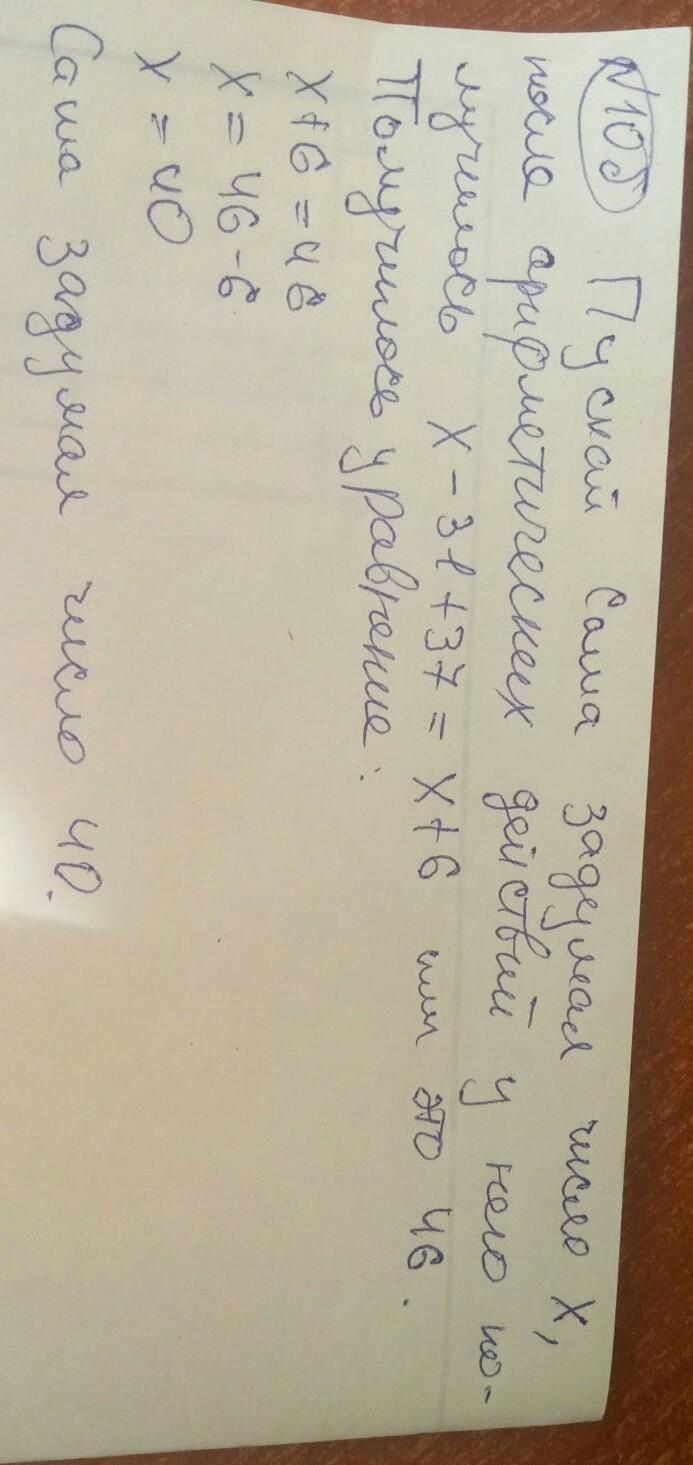 №105 Пускай Саша задумал число x,
после арифметических действий у него по-
лучилось x - 31 + 37 = x + 6 или это 46.
Получилось уравнение:
x + 6 = 46
x = 46 - 6
x = 40
Саша задумал число 40.